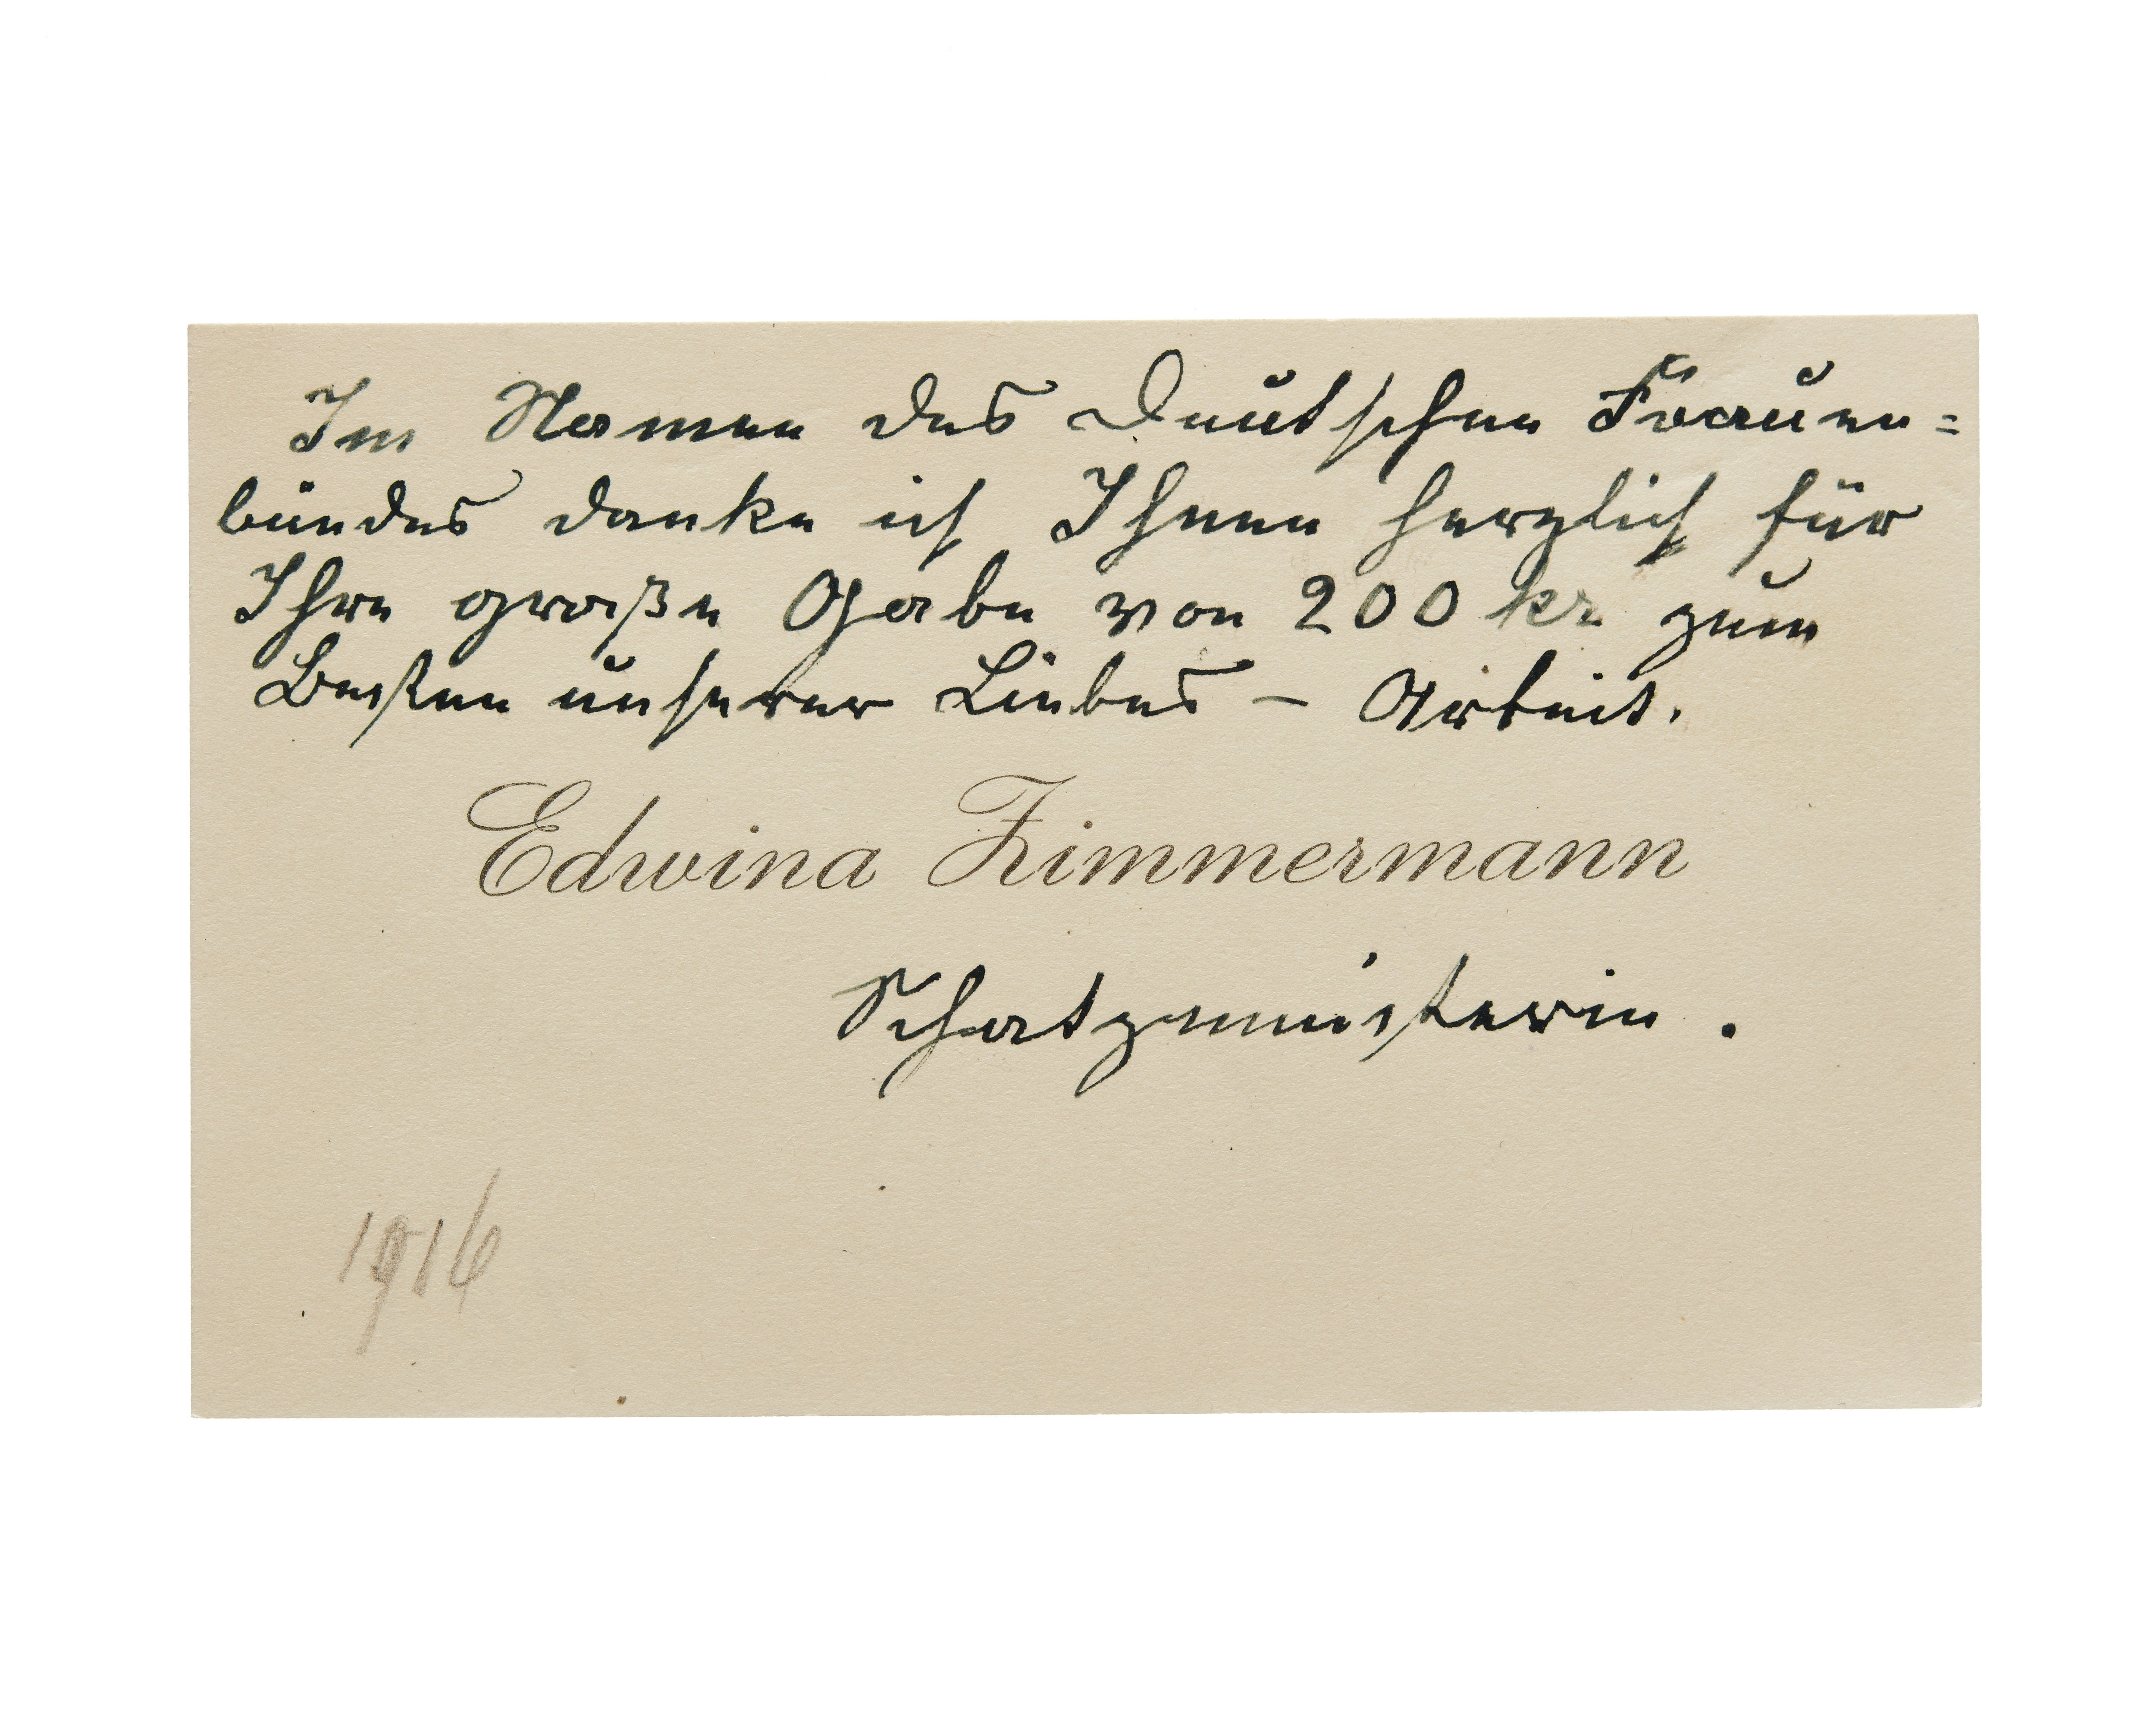 Im Namen des Deutschen Frauen=
bundes danke ich Ihnen herzlich für
Ihre große Gabe von 200 kr zum
Besten unserer Liebes - Arbeit.
Edwina Zimmermann
Schatzmeisterin .
1916